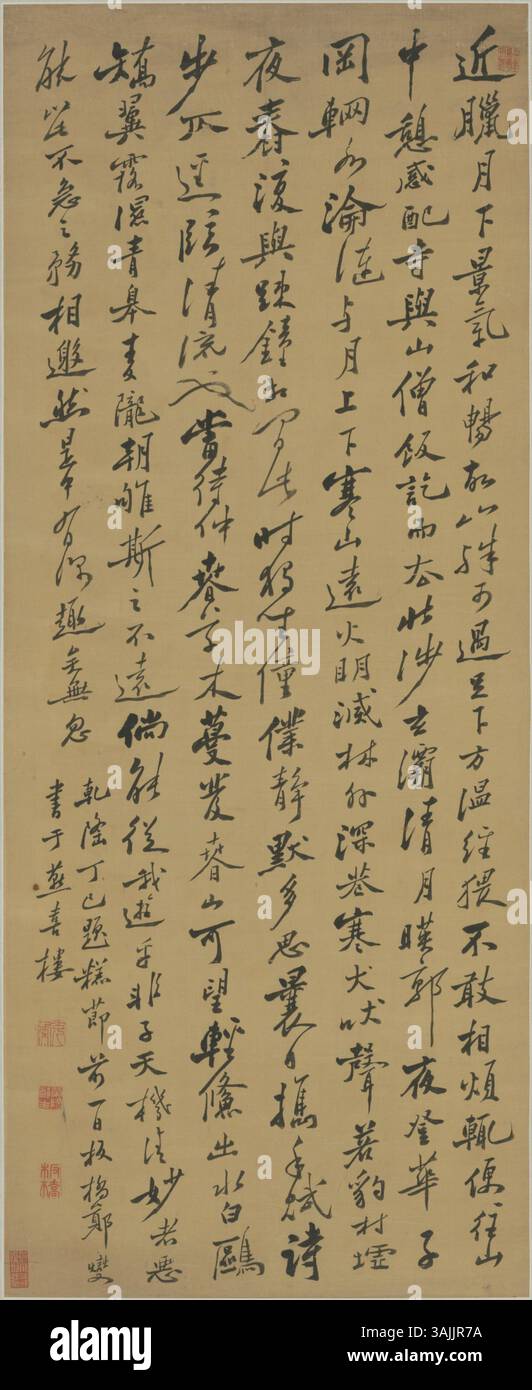 近臘月下景氣和暢故山殊可過足下方溫經猥不敢相煩輒便往山
中憩感配寺與山僧飯訖而去北涉玄灞清月暎郭夜登華子
岡輞水淪漣与月上下寒山遠火明滅林外深巷寒犬吠聲若豹村墟
夜舂復與疎鐘相間此時獨坐僮僕靜默多思曩日攜手賦詩
步仄逕臨清流也當待仲春草木蔓發春山可望輕鯈出水白鷗
矯翼露濕青皋麥隴朝雊斯之不遠倘能從我遊乎非子天機清妙者惡
能此不急之務相邀然是中有深趣矣無忽
乾隆丁巳題糕節前一日板橋鄭燮
書于燕喜樓
alamy
Image ID: 2AJJR7A
www.alamy.com